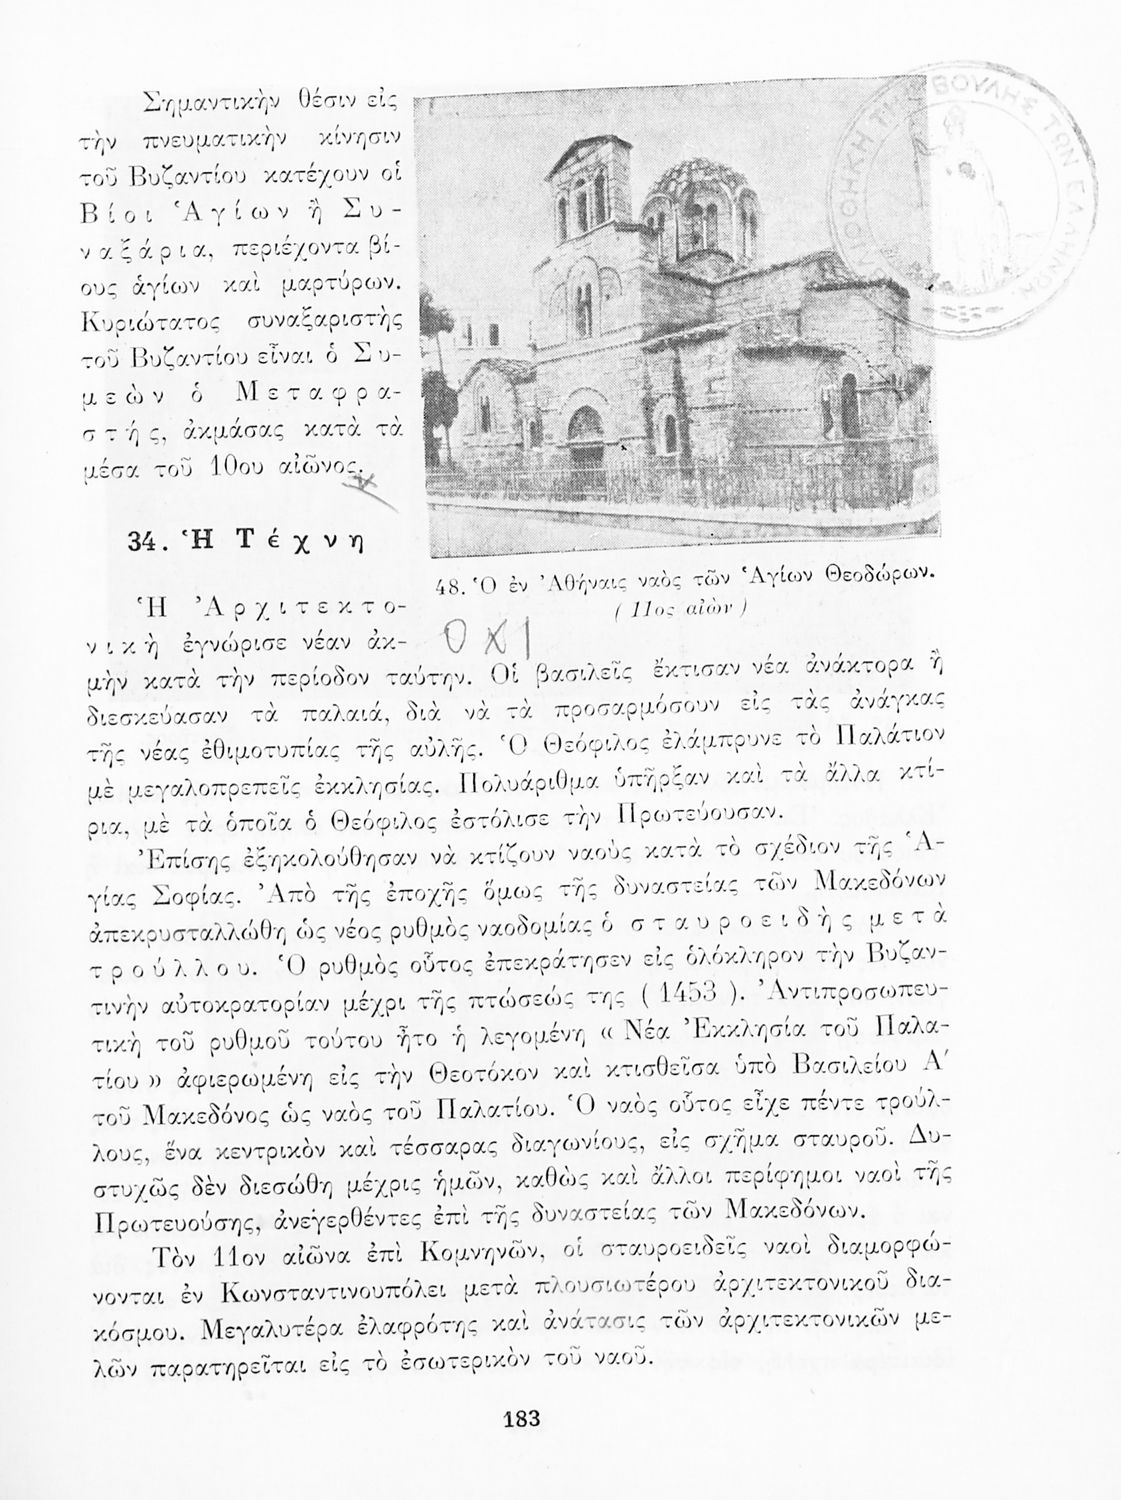 Σημαντικὴν θέσιν εἰς
τὴν πνευματικὴν κίνησιν
τοῦ Βυζαντίου κατέχουν οἱ
Βίοι Ἁγίων ἢ Συ-
ναξάρια, περιέχοντα βί-
ους ἁγίων καὶ μαρτύρων.
Κυριώτατος συναξαριστὴς
τοῦ Βυζαντίου εἶναι ὁ Συ-
μεὼν ὁ Μεταφρα-
στής, ἀκμάσας κατὰ τὰ
μέσα τοῦ 10ου αἰῶνος.
ΒΟΥΛΗΣ ΤΩΝ ΕΛΛΗΝΩΝ
48. Ὁ ἐν Ἀθήναις ναὸς τῶν Ἁγίων Θεοδώρων.
(11ος αἰὼν)
ΟΧΙ
34. Ἡ Τέχνη
Ἡ Ἀρχιτεκτο-
νικὴ ἐγνώρισε νέαν ἀκ-
μὴν κατὰ τὴν περίοδον ταύτην. Οἱ βασιλεῖς ἔκτισαν νέα ἀνάκτορα ἢ
διεσκεύασαν τὰ παλαιά, διὰ νὰ τὰ προσαρμόσουν εἰς τὰς ἀνάγκας
τῆς νέας ἐθιμοτυπίας τῆς αὐλῆς. Ὁ Θεόφιλος ἐλάμπρυνε τὸ Παλάτιον
μὲ μεγαλοπρεπεῖς ἐκκλησίας. Πολυάριθμα ὑπῆρξαν καὶ τὰ ἄλλα κτί-
ρια, μὲ τὰ ὁποῖα ὁ Θεόφιλος ἐστόλισε τὴν Πρωτεύουσαν.
Ἐπίσης ἐξηκολούθησαν νὰ κτίζουν ναοὺς κατὰ τὸ σχέδιον τῆς Ἁ-
γίας Σοφίας. Ἀπὸ τῆς ἐποχῆς ὅμως τῆς δυναστείας τῶν Μακεδόνων
ἀπεκρυσταλλώθη ὡς νέος ρυθμὸς ναοδομίας ὁ σταυροειδὴς μετὰ
τρούλλου. Ὁ ρυθμὸς οὗτος ἐπεκράτησεν εἰς ὁλόκληρον τὴν Βυζαν-
τινὴν αὐτοκρατορίαν μέχρι τῆς πτώσεώς της (1453). Ἀντιπροσωπευ-
τικὴ τοῦ ρυθμοῦ τούτου ἦτο ἡ λεγομένη « Νέα Ἐκκλησία τοῦ Παλα-
τίου » ἀφιερωμένη εἰς τὴν Θεοτόκον καὶ κτισθεῖσα ὑπὸ Βασιλείου Α΄
τοῦ Μακεδόνος ὡς ναὸς τοῦ Παλατίου. Ὁ ναὸς οὗτος εἶχε πέντε τρούλ-
λους, ἕνα κεντρικὸν καὶ τέσσαρας διαγωνίους, εἰς σχῆμα σταυροῦ. Δυ-
στυχῶς δὲν διεσώθη μέχρις ἡμῶν, καθὼς καὶ ἄλλοι περίφημοι ναοὶ τῆς
Πρωτευούσης, ἀνεγερθέντες ἐπὶ τῆς δυναστείας τῶν Μακεδόνων.
Τὸν 11ον αἰῶνα ἐπὶ Κομνηνῶν, οἱ σταυροειδεῖς ναοὶ διαμορφώ-
νονται ἐν Κωνσταντινουπόλει μετὰ πλουσιωτέρου ἀρχιτεκτονικοῦ δια-
κόσμου. Μεγαλυτέρα ἐλαφρότης καὶ ἀνάτασις τῶν ἀρχιτεκτονικῶν με-
λῶν παρατηρεῖται εἰς τὸ ἐσωτερικὸν τοῦ ναοῦ.
183